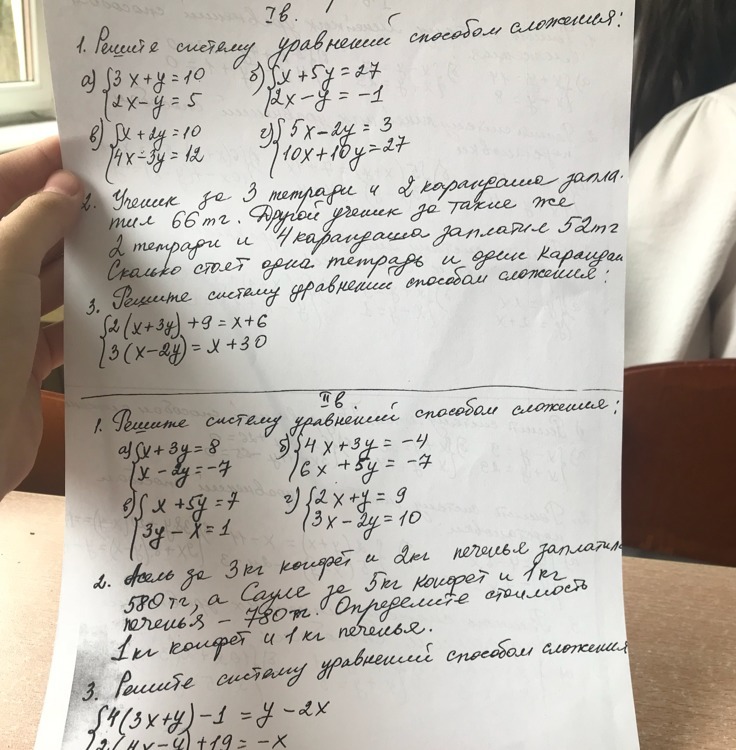 Iв.
1. Решите систему уравнений способом сложения:
а) {3x+y=10 б) {x+5y=27
{2x-y=5 {2x-y=-1
в) {x+2y=10 г) {5x-2y=3
{4x-3y=12 {10x+10y=27
2. Ученик за 3 тетради и 2 карандаша запла-
тил 66тг. Другой ученик за такие же
2 тетради и 4 карандаша заплатил 52тг
Сколько стоет одна тетрадь и один каранда
3. Решите систему уравнений способом сложения:
{2(x+3y)+9=x+6
{3(x-2y)=x+30
IIв.
1. Решите систему уравнений способом сложения:
а) {x+3y=8 б) {4x+3y=-4
{x-2y=-7 {6x+5y=-7
в) {x+5y=7 г) {2x+y=9
{3y-x=1 {3x-2y=10
2. Асель за 3кг конфет и 2кг печенья заплатила
580тг, а Сауле за 5кг конфет и 1кг
печенья – 780тг. Определите стоимость
1кг конфет и 1кг печенья.
3. Решите систему уравнений способом сложения
{4(3x+y)-1=y-2x
{2(4x-y)+19=-x